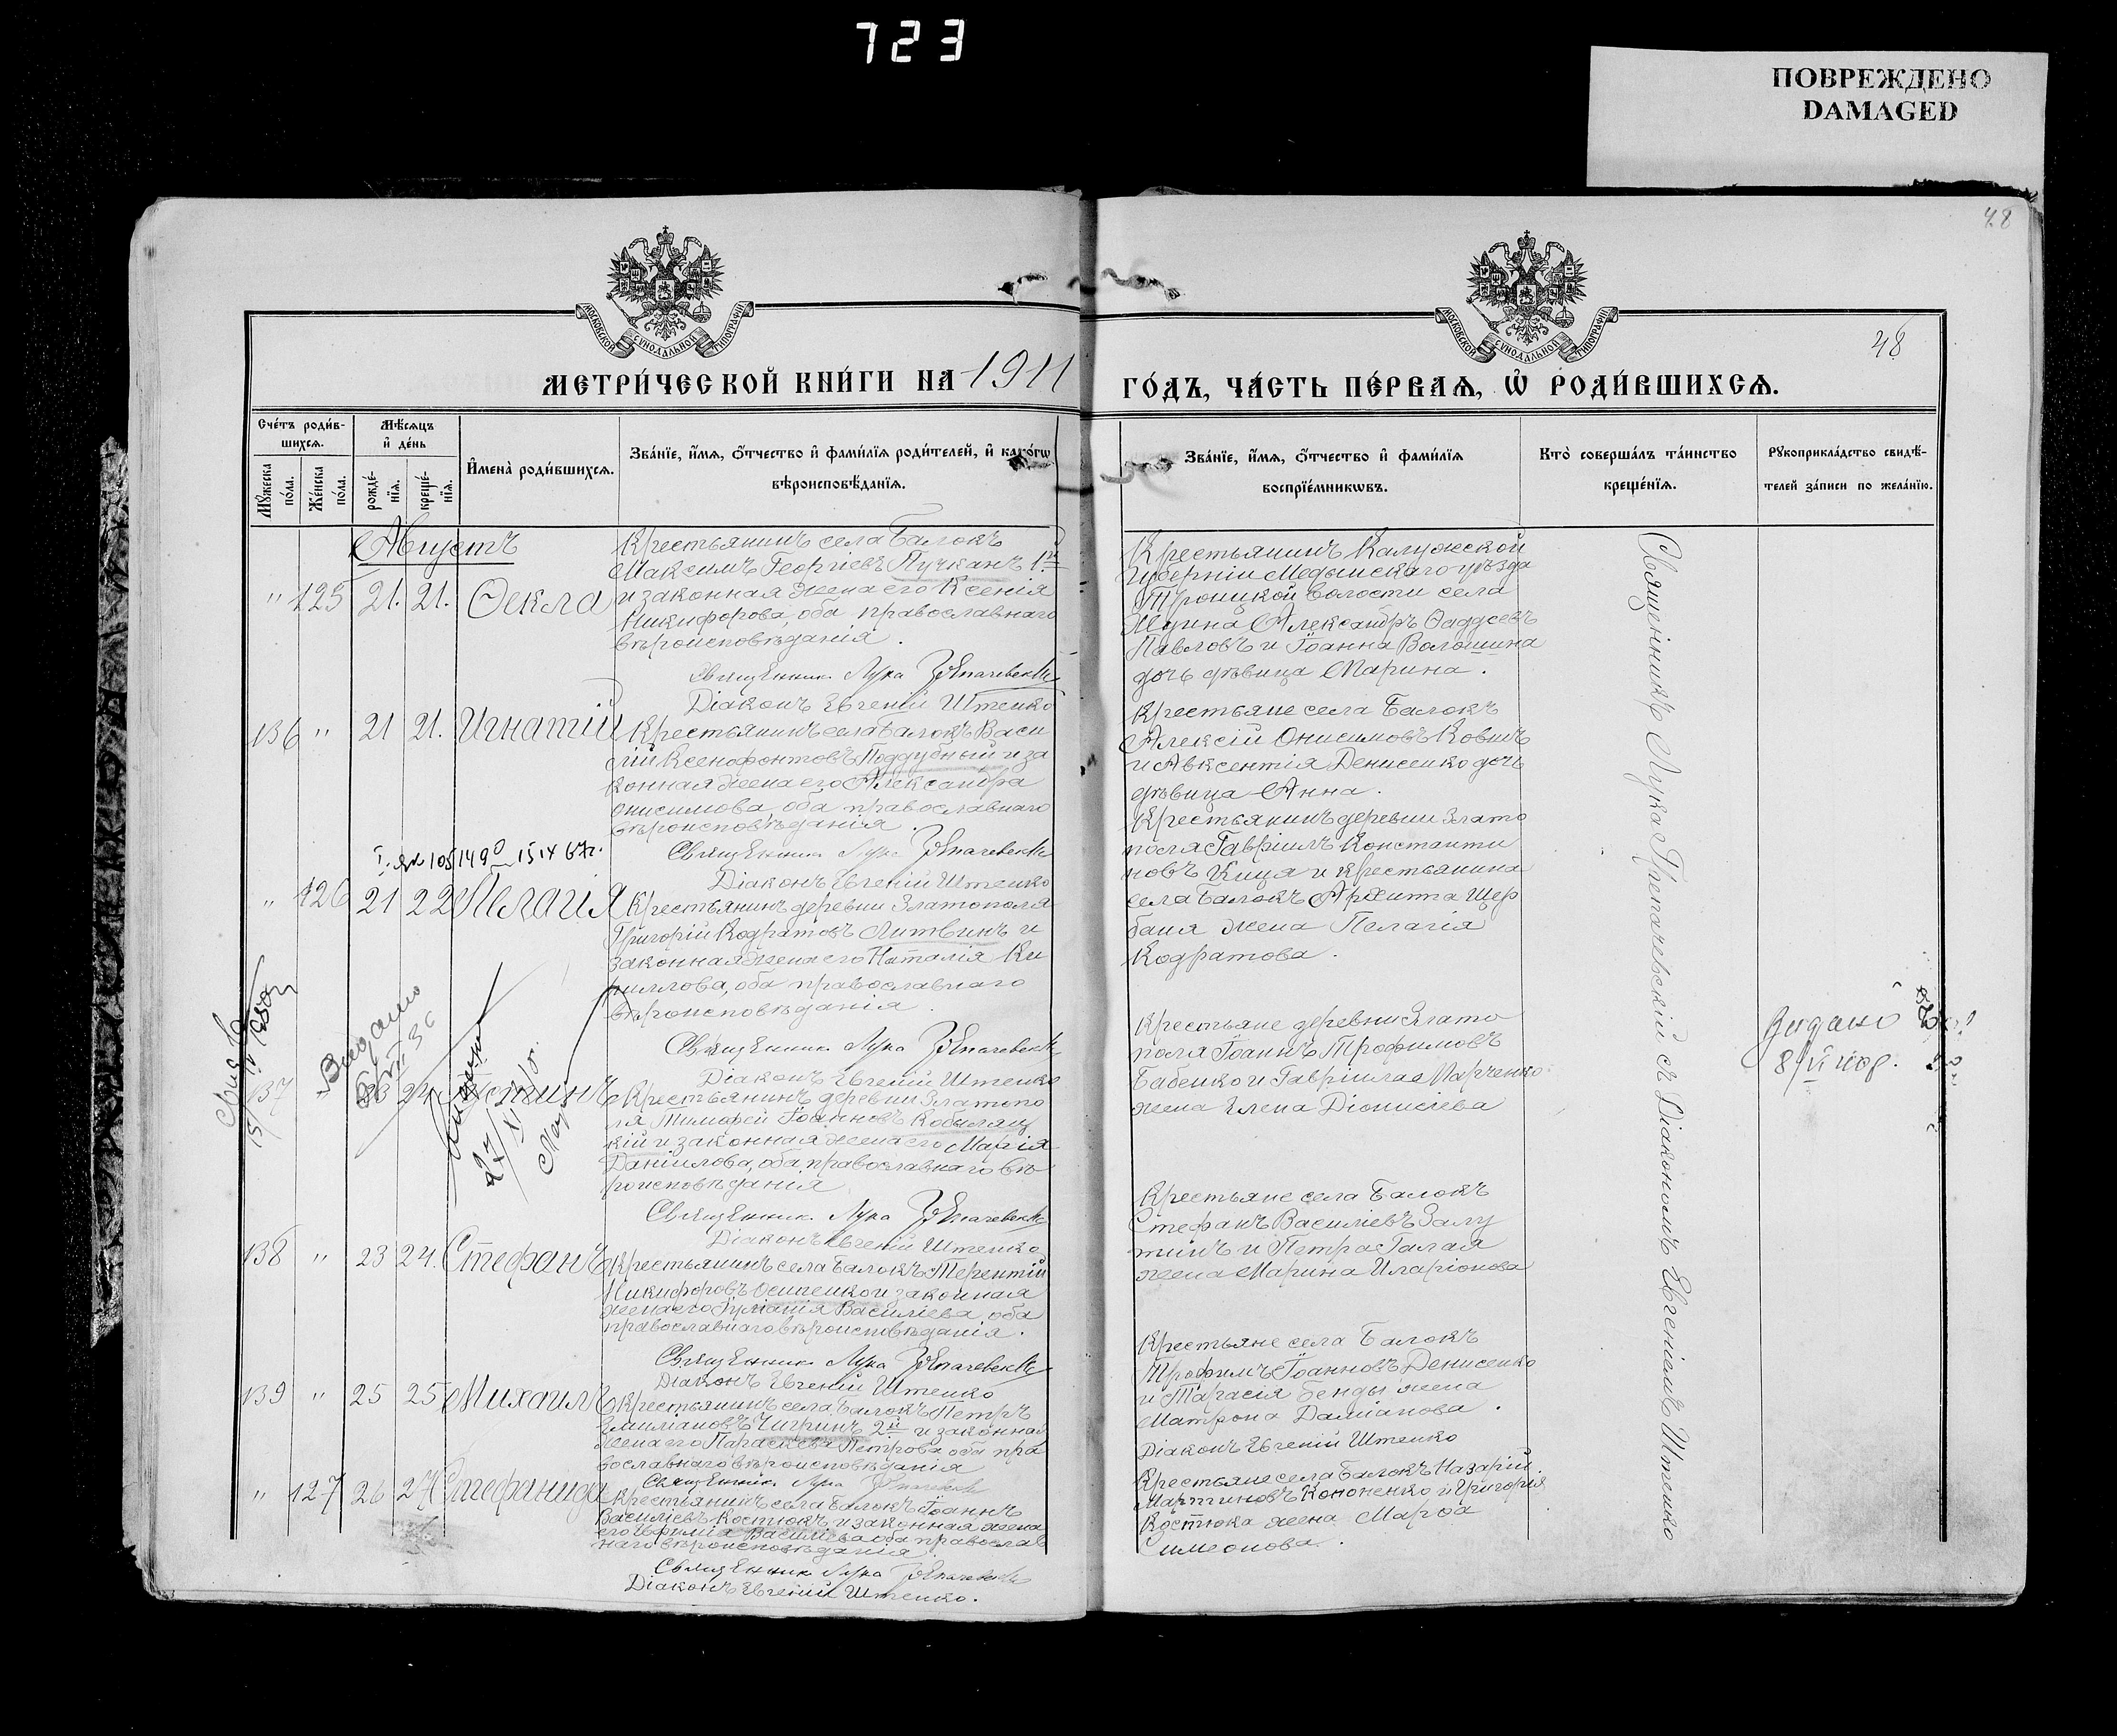 723
ПОВРЕЖДЕНО
DAMAGED
48
МОСКОВСКОЙ СѴНОДАЛЬНОЙ ТИПОГРАФІИ
МОСКОВСКОЙ СѴНОДАЛЬНОЙ ТИПОГРАФІИ
48
МЕТРИ́ЧЕСКОЙ КНИ́ГИ НА 1911
ГО́ДЪ, ЧА́СТЬ ПЕ́РВАѦ, Ѡ҆ РОДИ́ВШИХСѦ.
Сче́тъ роди́в-
шихсѧ.
Мѣ́сѧцъ
и҆ де́нь
Мꙋ́жеска
по́ла.
Же́нска
по́ла.
рожде́-
нїѧ.
креще́-
нїѧ.
И҆мена̀ роди́вшихсѧ.
Зва́нїе, и҆́мѧ, ѻ҆́тчество и҆ фами́лїѧ роди́телей, и҆ како́гѡ
вѣроисповѣ́данїѧ.
Зва́нїе, и҆́мѧ, ѻ҆́тчество и҆ фами́лїѧ
воспрїе́мникѡвъ.
Кто̀ соверша́лъ та́инство
креще́нїѧ.
Рꙋкоприкла́дство свидѣ́-
телей за́писи по жела́нїю.
Августъ
" 125 21. 21. Ѳекла
Крестьянинъ села Балокъ
Максимъ Георгіевъ Пучканъ 1й
и законная жена его Ксенія
Никифорова, оба православнаго
вѣроисповѣданія.
Священник Лука
Діаконъ Евгеній Штепко
Крестьянинъ Калужской
губерніи Медынскаго уѣзда
Троицкой волости села
Александръ Ѳаддеевъ
Павловъ и Іоанна Волошина
дочь дѣвица Марина.
136 " 21 21. Игнатій
Крестьянинъ села Балокъ Васи
лій Ксенофонтовъ Поддубный и за
конная жена его Александра
Онисимова, оба православнаго
вѣроисповѣданія.
Священник Лука
Діаконъ Евгеній Штепко
Крестьяне села Балокъ
Алексій Онисимовъ Ковинъ
и Авксентія Денисенко дочь
дѣвица Анна.
" 126 21 22 Пелагія
Крестьянинъ деревни Златополя
Григорій Кодратовъ Литвинъ и
законная жена его Наталія Ки
риллова, оба православнаго
вѣроисповѣданія.
Священник Лука
Діаконъ Евгеній Штепко
Крестьянинъ деревни Злато
поля Гавріилъ Константи
новъ Куця и крестьянина
села Балокъ Архипа Щер
баня жена Пелагія
Кодратова.
Видано
137 " 23 24 Іустинъ
Крестьянинъ деревни Златопо
ля Тимофей Іоанновъ Кобыляц
кій и законная жена его Марія
Даніилова, оба православнаго вѣ
роисповѣданія
Священник Лука
Діаконъ Евгеній Штепко
Крестьяне деревни Злато
поля Іоаннъ Трофимовъ
Бабенко и Гавріила Марченко
жена Елена Діонисіева
Видано
138 " 23 24. Стефанъ
Крестьянинъ села Балокъ Терентій
Никифоровъ Осипенко и законная
жена его Іуліанія Василіева, оба
православнаго вѣроисповѣданія.
Священник Лука
Діаконъ Евгеній Штепко
Крестьяне села Балокъ
Стефанъ Василіевъ Залу
тинъ и Петра Галая
жена Марина Иларіонова
139 " 25 25 Михаилъ
Крестьянинъ села Балокъ Петръ
Емиліановъ Чигринъ 2й и законная
жена его Параскева Петрова оба пра
вославнаго вѣроисповѣданія
Священник Лука
Крестьяне села Балокъ
Трофимъ Іоанновъ Денисенко
и Тарасія Бенды жена
Матрона Даміанова.
Діаконъ Евгеній Штепко
" 127 26 27 Стефанида
Крестьянинъ села Балокъ Іоаннъ
Василіевъ Костюкъ и законная жена
его Евфимія Василіева оба православ
наго вѣроисповѣданія.
Священник Лука
Діаконъ Евгеній Штепко.
Крестьяне села Балокъ Назарій
Мартиновъ Кононенко и Григорія
Костюка жена Марѳа
Симеонова.
Священникъ Лука Трепачевскій съ Діакономъ Евгеніемъ Штепко